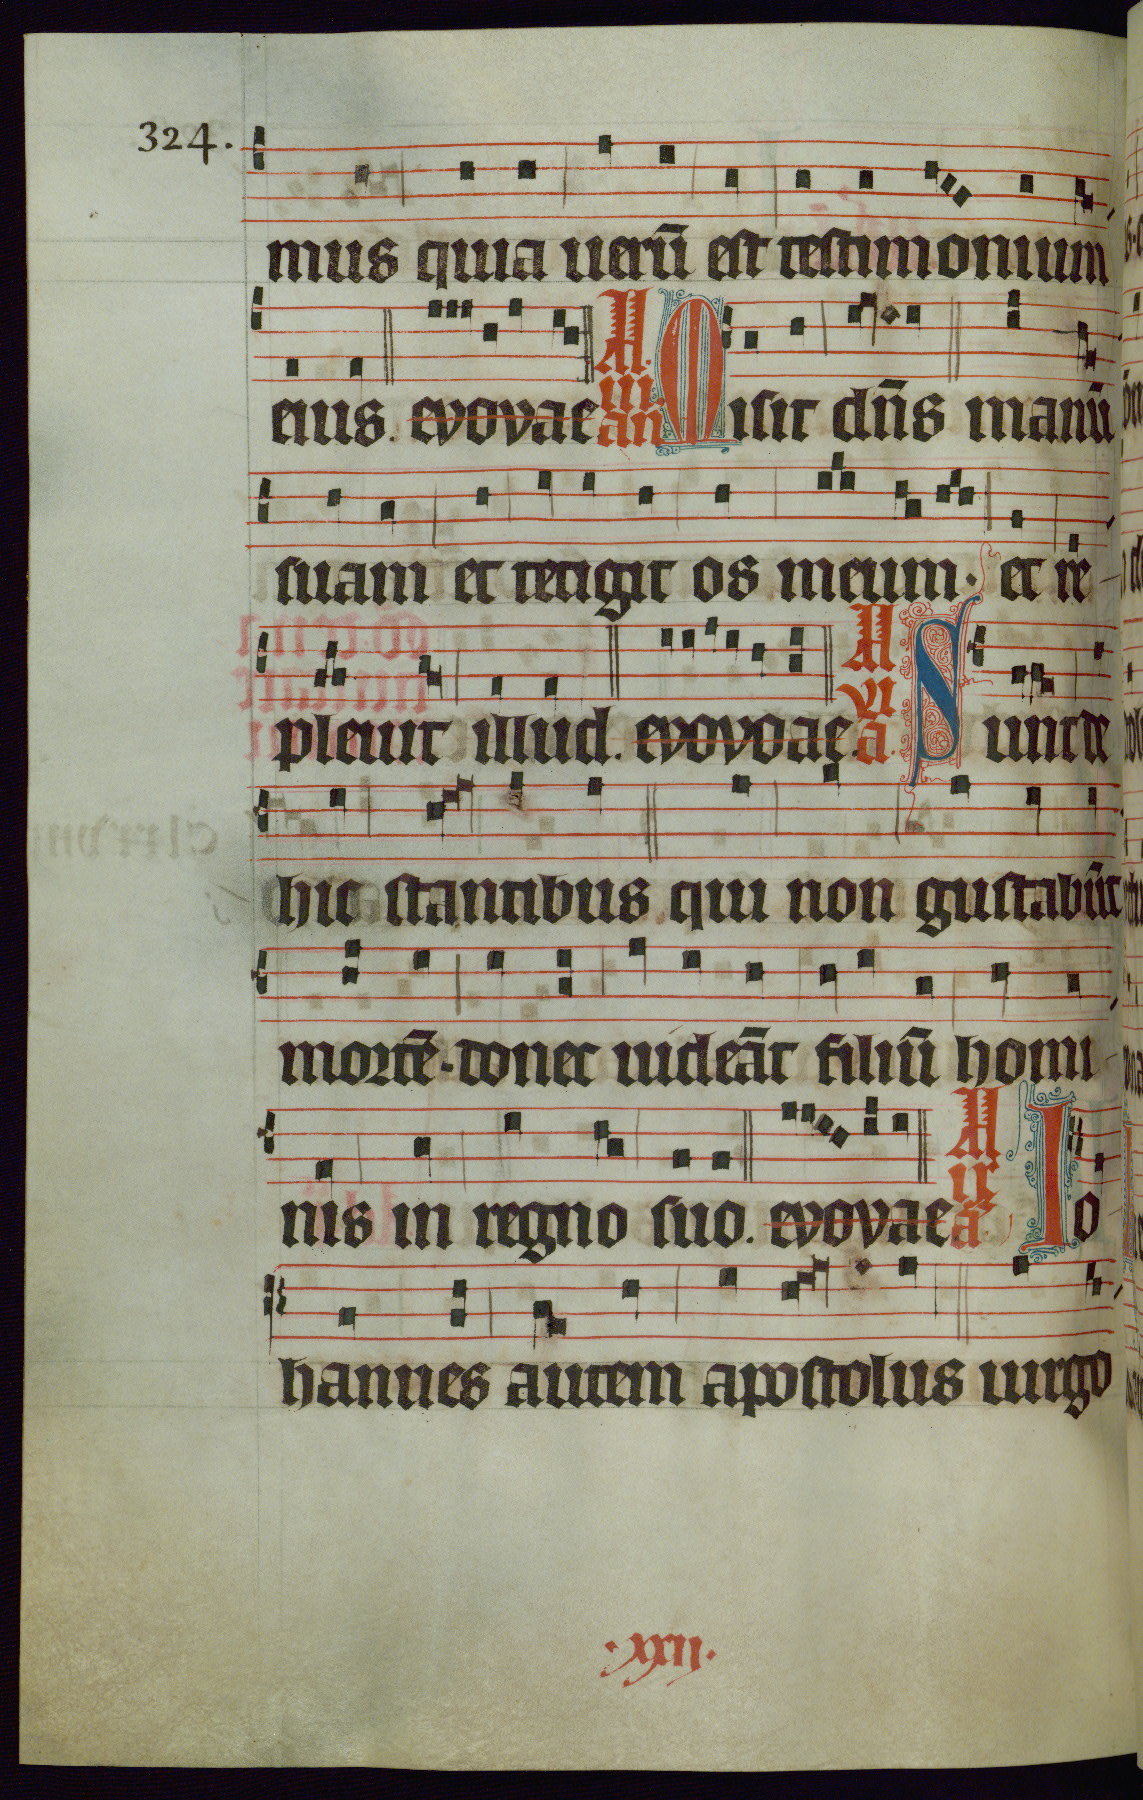 324.
mus quia uerū est testimonium
eius. evovae A. iii. an Misit dn̄s manū
suam et tetigit os meum. et re
pleuit illud. evovoae. A vi a Sunt de
hic stantibus qui non gustabūt
mortē. donec uideāt filiū homi
nis in regno suo. evovae A ir a Io
hannes autem apostolus uirgo
.xxii.